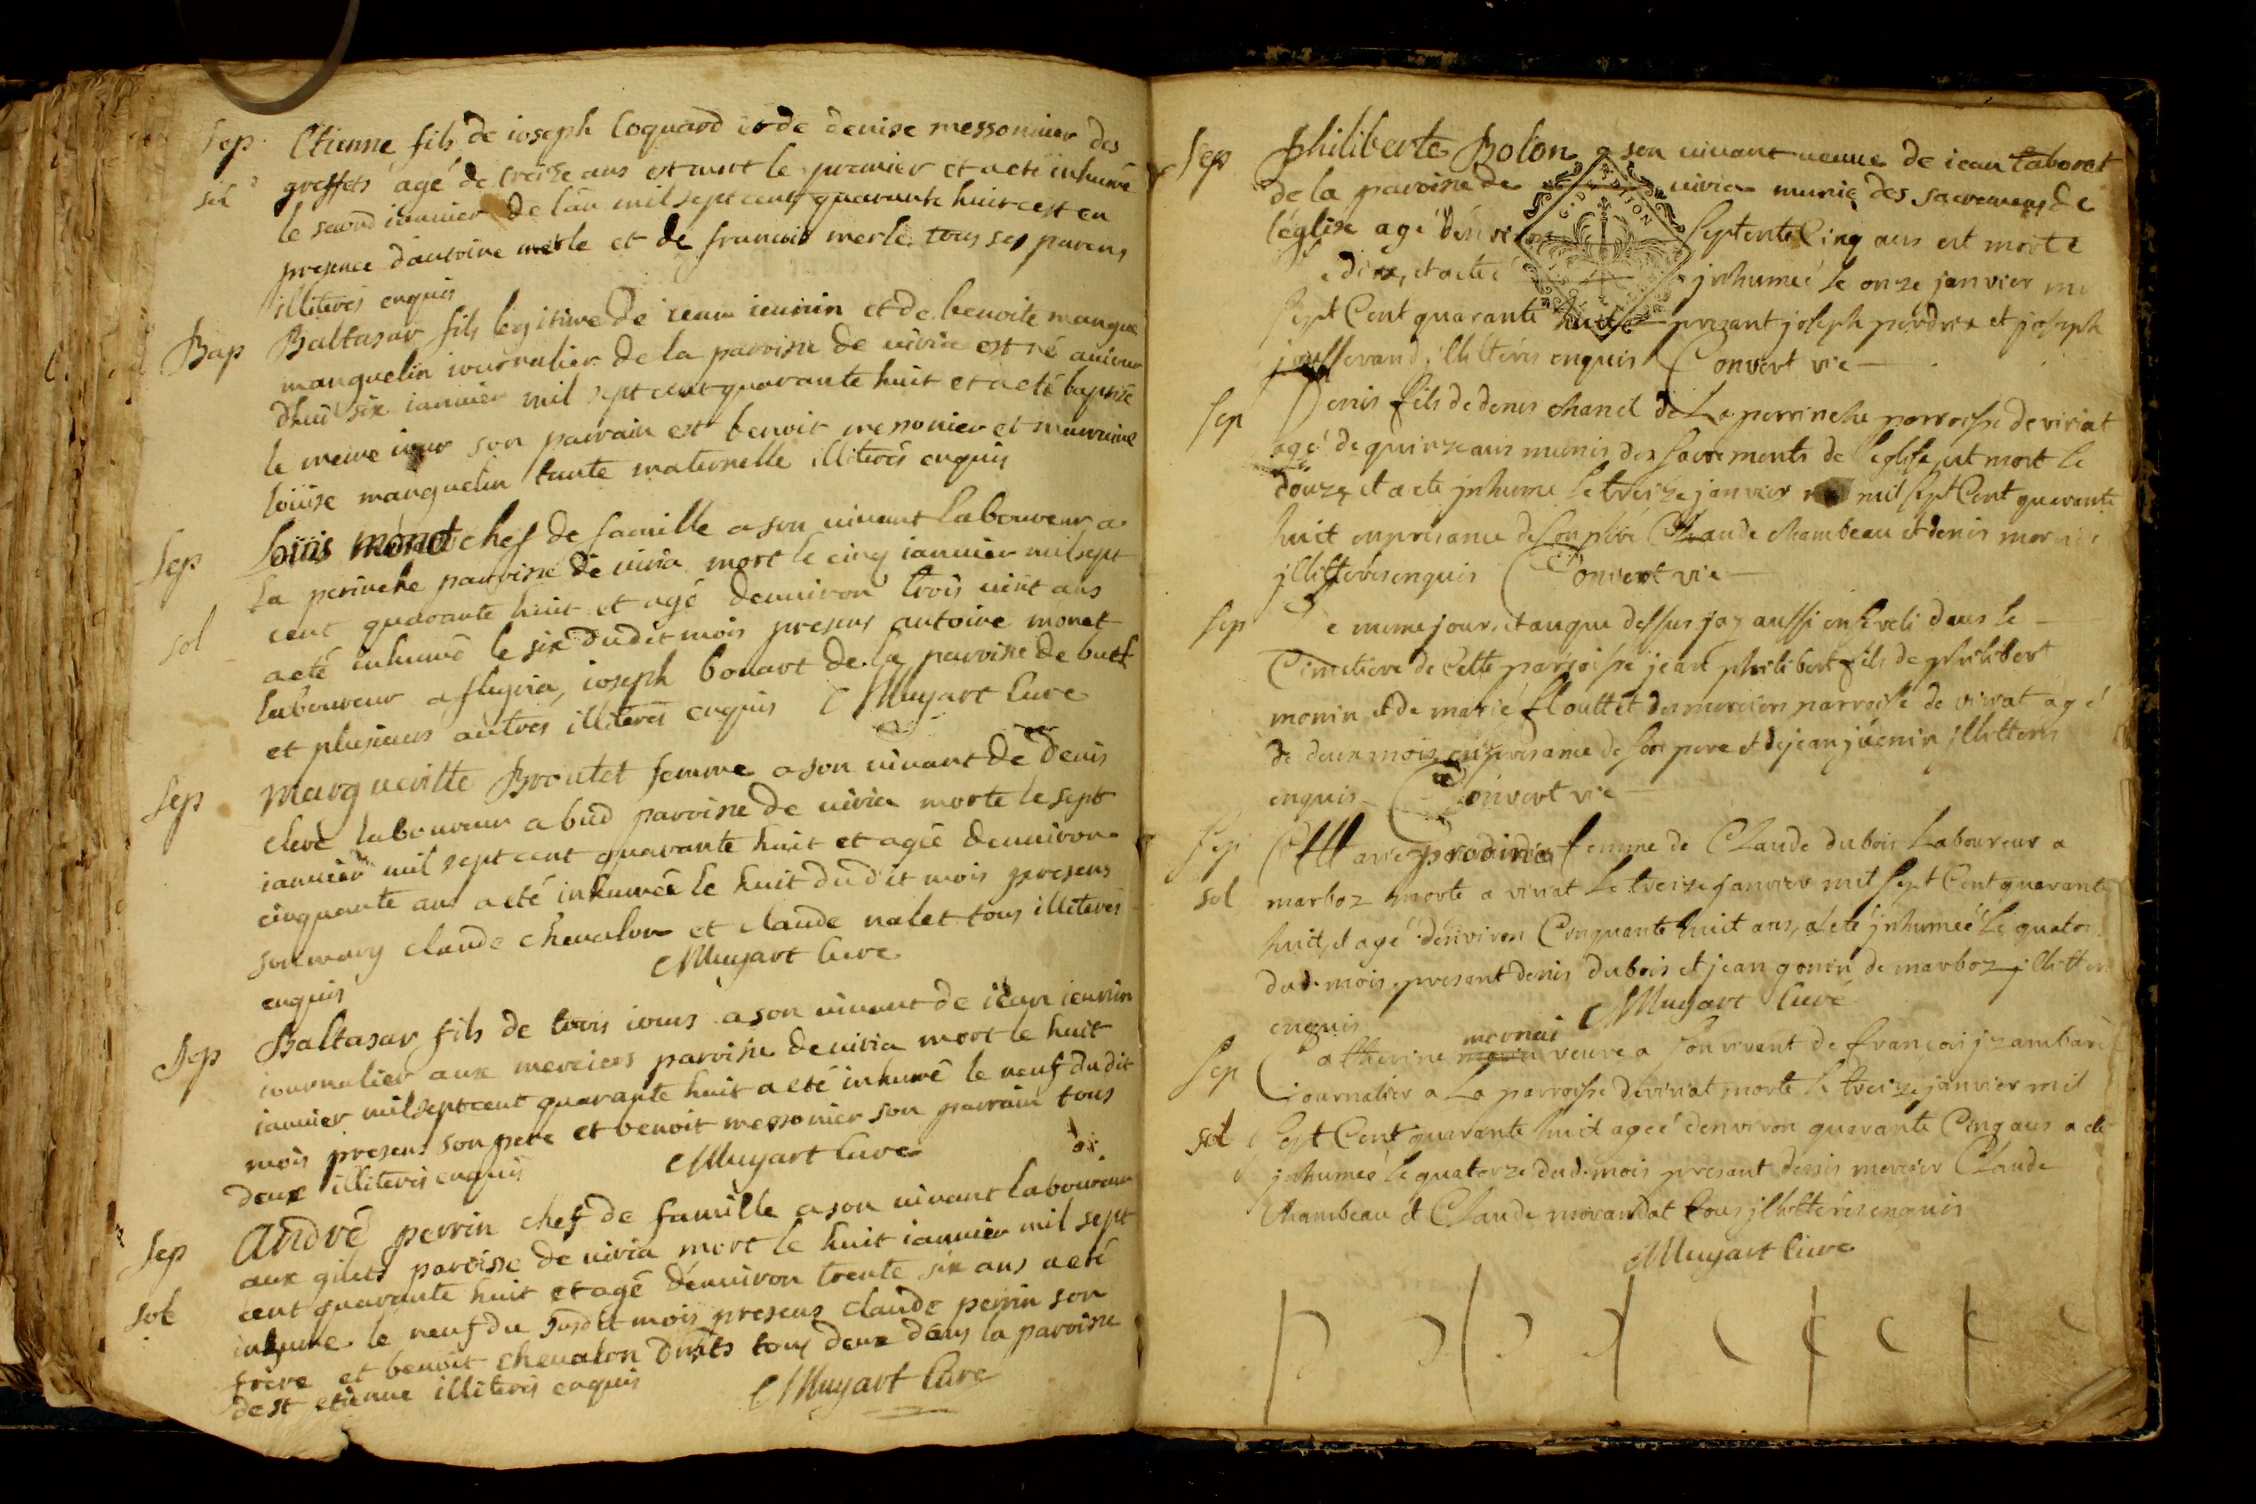 Sep Etienne fils de ioseph Coquard et de denise messonnier des
sol greffets agé de treize ans est mort le premier et a eté inhumé
le second ianuier de lan mil sept cent quarante huit cest en
presence dantoine merle et de francois merle tous ses parens
illiterés enquis
Bap Baltasar fils legitime de iean ieunin et de benoite
manguelin iournalier de la paroisse de uiria est né auiour
dhui six ianuier mil sept cent quarante huit et a eté baptisé
le meme iour son parrain est benoit messonier et marraine
louise manguelin tante maternelle illiterés enquis
Sep Louis monet chef de famille a son uiuant laboureur a
la perinche paroisse de uiria mort le cinq ianuier mil sept
sol cent quarante huit et agé denuiron trois uint ans
a eté inhumé le six dudit mois presens antoine monet
laboureur a fluyria, ioseph bouart de la paroisse de
et plusieurs autres illiterés enquis CMuyart Cure
Sep Margueritte Broutet femme a son uiuant de Denis
clerc laboureur a bud paroisse de uiria morte le sept
ianuier mil sept cent quarante huit et agée denuiron
cinquante ans a eté inhumée le huit dudit mois presens
son mary claude cheualon et claude nalet tous illiterés
enquis CMuyart Cure
Sep Baltasar fils de trois iours a son uiuant de iean ieunin
iournalier aux merciers paroisse de uiria mort le huit
ianuier mil sept cent quarante huit a eté inhumé le neuf dudit
mois presens son pere et benoit messonier son parrain tous
deux illiterés enquis CMuyart Cure
Sep André perrin chef de famille a son uiuant laboureur
aux gilets paroisse de uiria mort le huit ianuier mil sept
sol cent quarante huit et agé denuiron trente six ans a eté
inhumé le neuf du susdit mois presens claude perrin son
frere et benoit cheualon tous deux dans la paroisse
de st etienne illiterés enquis CMuyart Cure
Sep Philiberte Bolon a son uiuant ueuue de iean taboret
de la paroisse de uiria munie des sacremens de
léglise agé denviron septente Cinq ans est morte
le dix, et a eté inhumée le onze janvier mil
sept Cent quarante huit presant joseph perdrix et joseph
illitterés enquis Convert vic
Sep Denis fils de denis chanel de La perrinche parroisse de viriat
agé de quinze ans munis des sacrements de leglise est mort le
douze et a eté jnhumé le treize janvier mil sept Cent quarante
huit en presance de son père Claude chambeau et denis
jllitterés enquis Convert vic
Sep Le meme jour, et an que dessus jay aussi enseveli dans le
Cimetiere de Cette parroisse jean philibert fils de philibert
monin et de marie flouttet des merciers parroisse de viriat agé
de deux mois en presance de son pere et de jean jüenin jllitterés
enquis Convert vic
Sep Marie prodina femme de Claude dubois Laboureur a
sol marboz morte a viriat le treize janvier mil sept Cent quarante
huit, et agé denviron Cinquante huit ans, a eté jnhumeé le quator
dud. mois. presant denis dubois et jean gonin de marboz jllitterés
enquis CMuyart Curé
mornai
Sep Catherine veuve a son vivant de françois jzambard
journalier a La parroisse de viriat morte le treize janvier mil
sol sept Cent quarante huit ageé denviron quarante Cinq ans a eté
jnhumeé le quatorze dud. mois presant denis mercier Claude
Chambeau et Claude morandat tous jllitterés enquis
CMuyart Cure